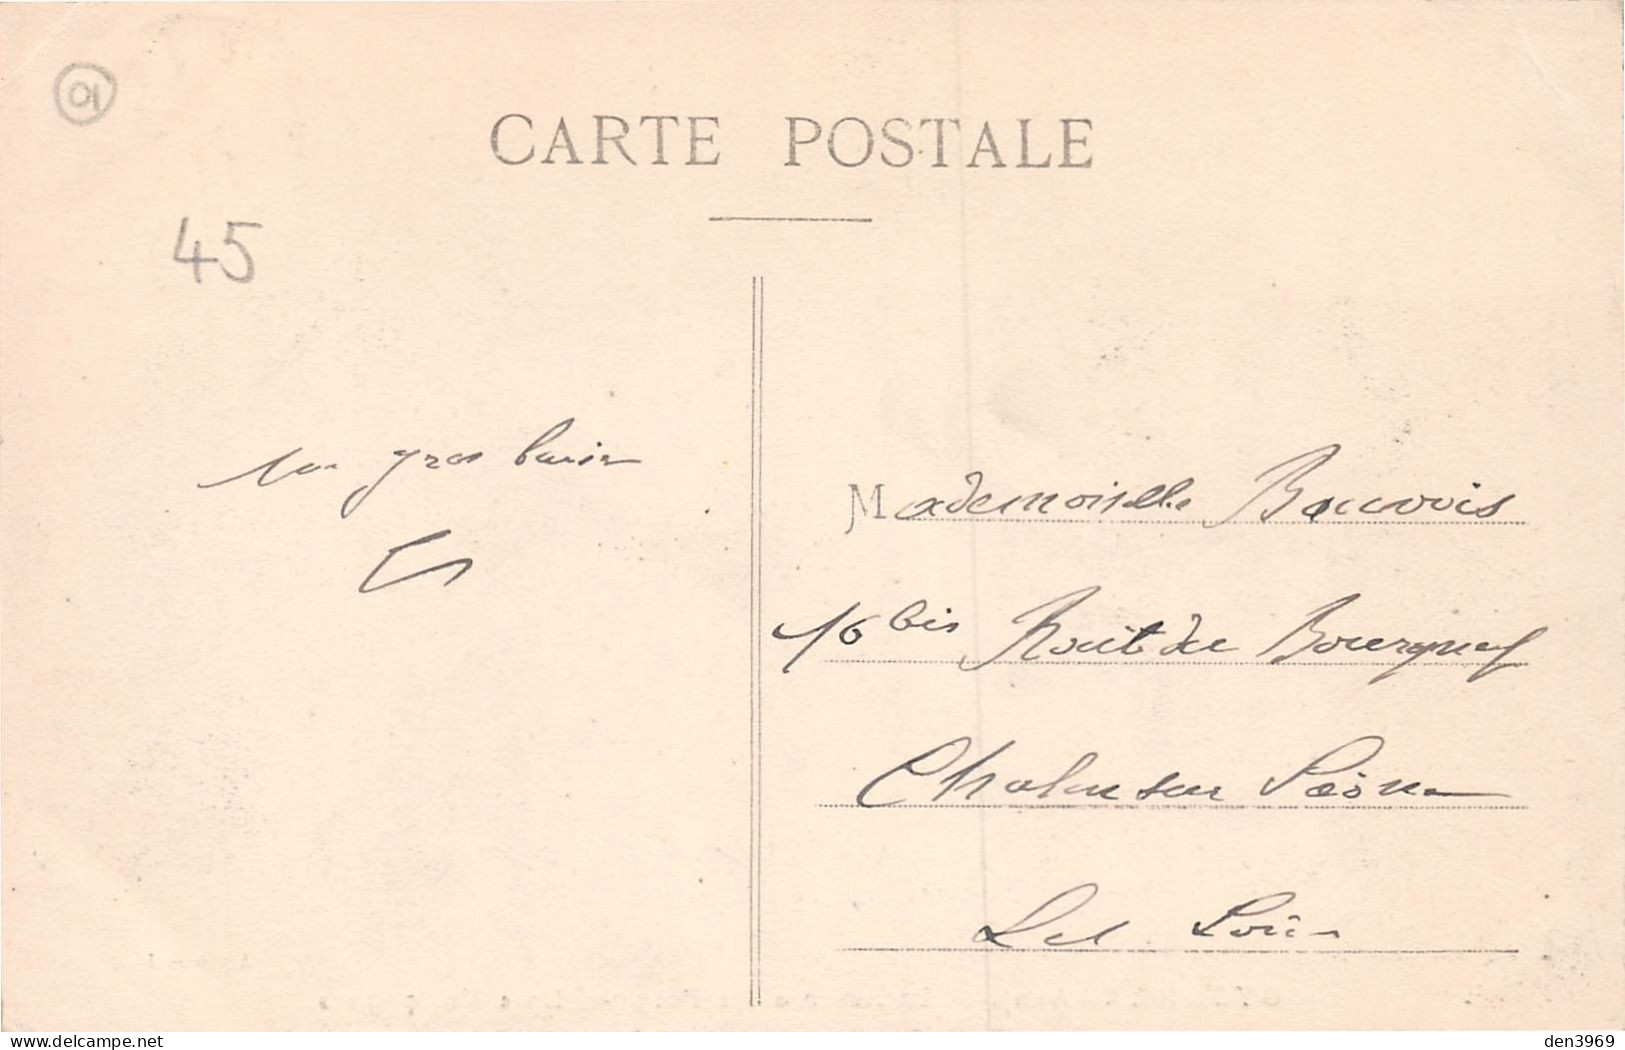 01
CARTE POSTALE
45
un gros baiser
Mademoiselle
16 bis Route de Bourgneuf
Chalon sur Saône
S et Loire
delcampe.net
den3969